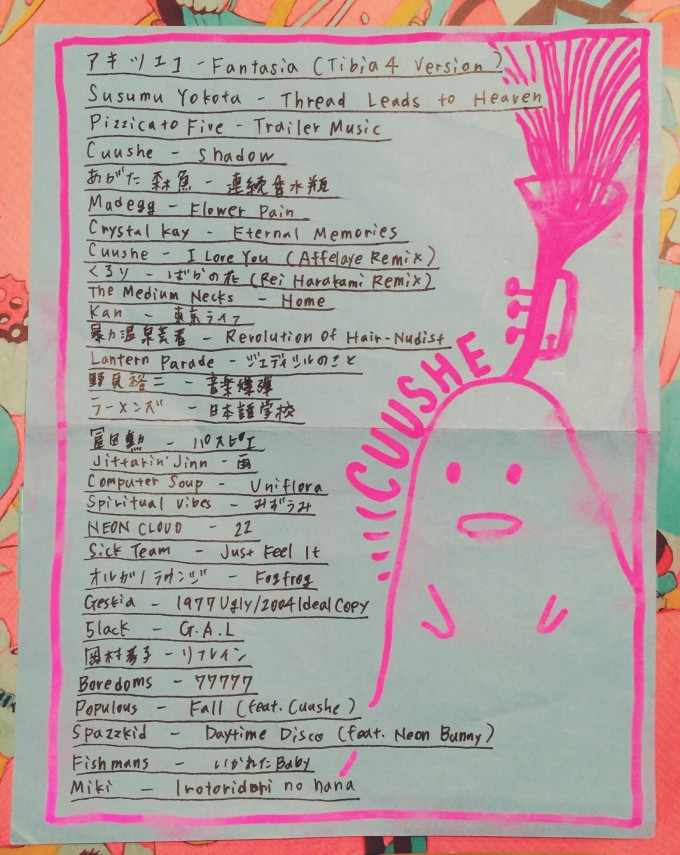 アキツユコ - Fantasia (Tibia 4 version)
Susumu Yokota - Thread Leads to Heaven
Pizzicato Five - Trailer Music
Cuushe - Shadow
あがた 森魚 - 連続香水瓶
Madegg - Flower Pain
Crystal Kay - Eternal Memories
Cuushe - I Love You (Affelaye Remix)
くるり - ばかの花 (Rei Harakami Remix)
The Medium Necks - Home
Kan - 東京ライフ
暴力温泉芸者 - Revolution Of Hair-Nudist
Lantern Parade - ジェディッツルのこと
野見裕二 - 音楽爆弾
ラーメンズ - 日本語学校
冨田勲 - パスピエ
Jittarin' Jinn - 雨
Computer Soup - Uniflora
Spiritual Vibes - みずうみ
NEON CLOUD - 22
Sick Team - Just Feel It
オルガノラウンジ - Fogfrog
Geskia - 1977 Ugly/2004 Ideal Copy
5lack - G.A.L
岡村孝子 - リフレイン
Boredoms - 77777
Populous - Fall (feat. Cuushe)
Spazzkid - Daytime Disco (feat. Neon Bunny)
Fishmans - いかれたBaby
Miki - Irotoridori no hana
CUUSHE